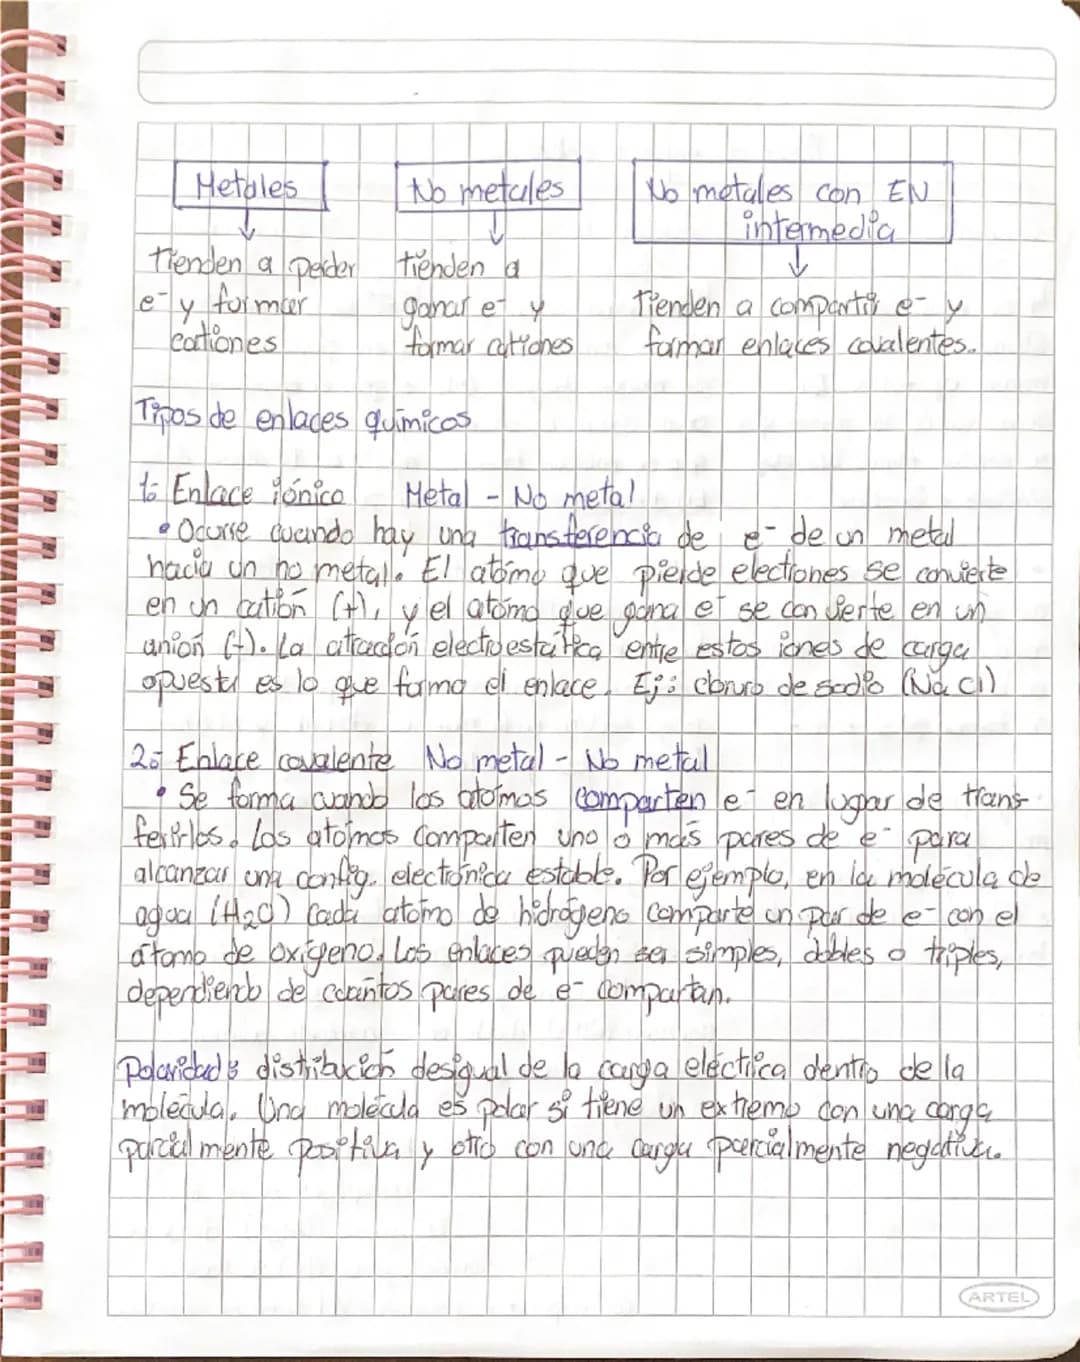 Metales
No metales
No metales con EN
intermedia
tienden a perder
e- y formar
cationes
tienden a
ganar e- y
formar cationes
Tienden a compartir e- y
formar enlaces covalentes.
Tipos de enlaces químicos
1: Enlace iónico Metal - No metal
• Ocurre cuando hay una transferencia de e- de un metal
hacia un no metal. El atómo que pierde electrones se convierte
en un catión (+), y el atómo que gana e- se convierte en un
anión (-). La atracción electroestática entre estos iones de carga
opuesta es lo que forma el enlace. Ej: cloruro de sodio (NaCl)
2: Enlace covalente No metal - No metal
• Se forma cuando los atómos comparten e- en lugar de trans-
ferirlos. Los atómos comparten uno o más pares de e- para
alcanzar una config. electrónica estable. Por ejemplo, en la molécula de
agua (H2O) cada atómo de hidrógeno comparte un par de e- con el
átomo de oxígeno. Los enlaces pueden ser simples, dobles o triples,
dependiendo de cuántos pares de e- compartan.
Polaridad: distribución desigual de la carga eléctrica dentro de la
molécula. Una molécula es polar si tiene un extremo con una carga
parcialmente positiva y otro con una carga parcialmente negativa.
ARTEL